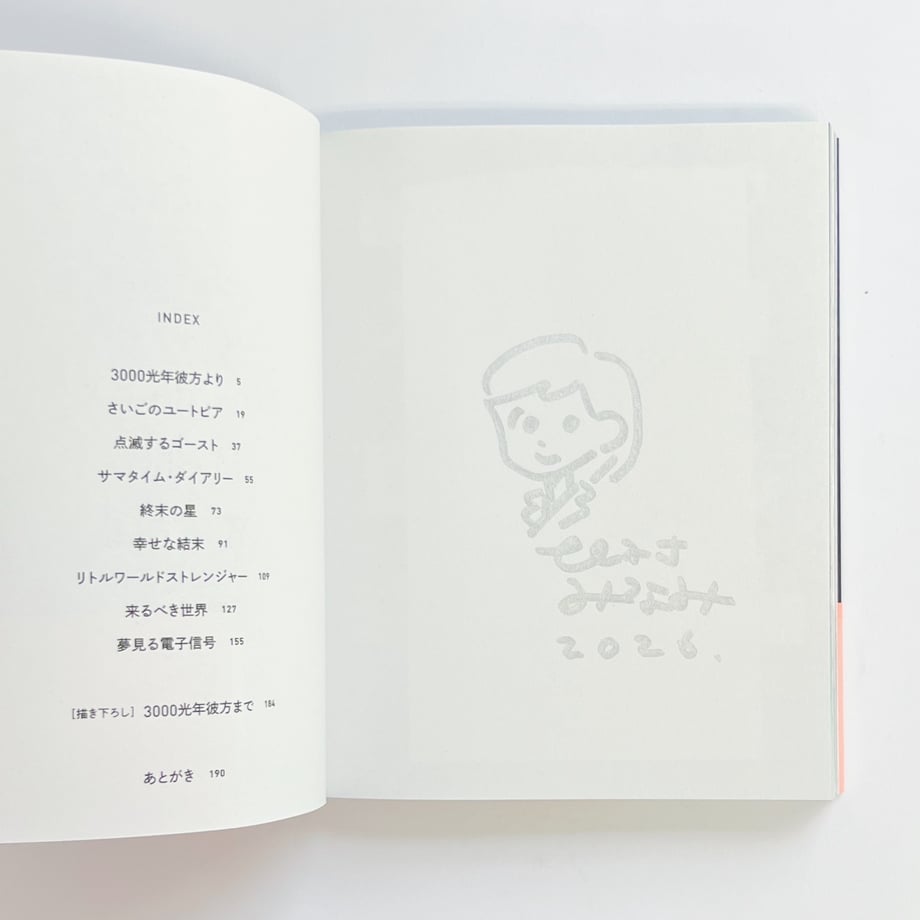 INDEX
3000光年彼方より 5
さいごのユートピア 19
点滅するゴースト 37
サマタイム・ダイアリー 55
終末の星 73
幸せな結末 91
リトルワールドストレンジャー 109
来るべき世界 127
夢見る電子信号 155
[描き下ろし] 3000光年彼方まで 184
あとがき 190
2026.